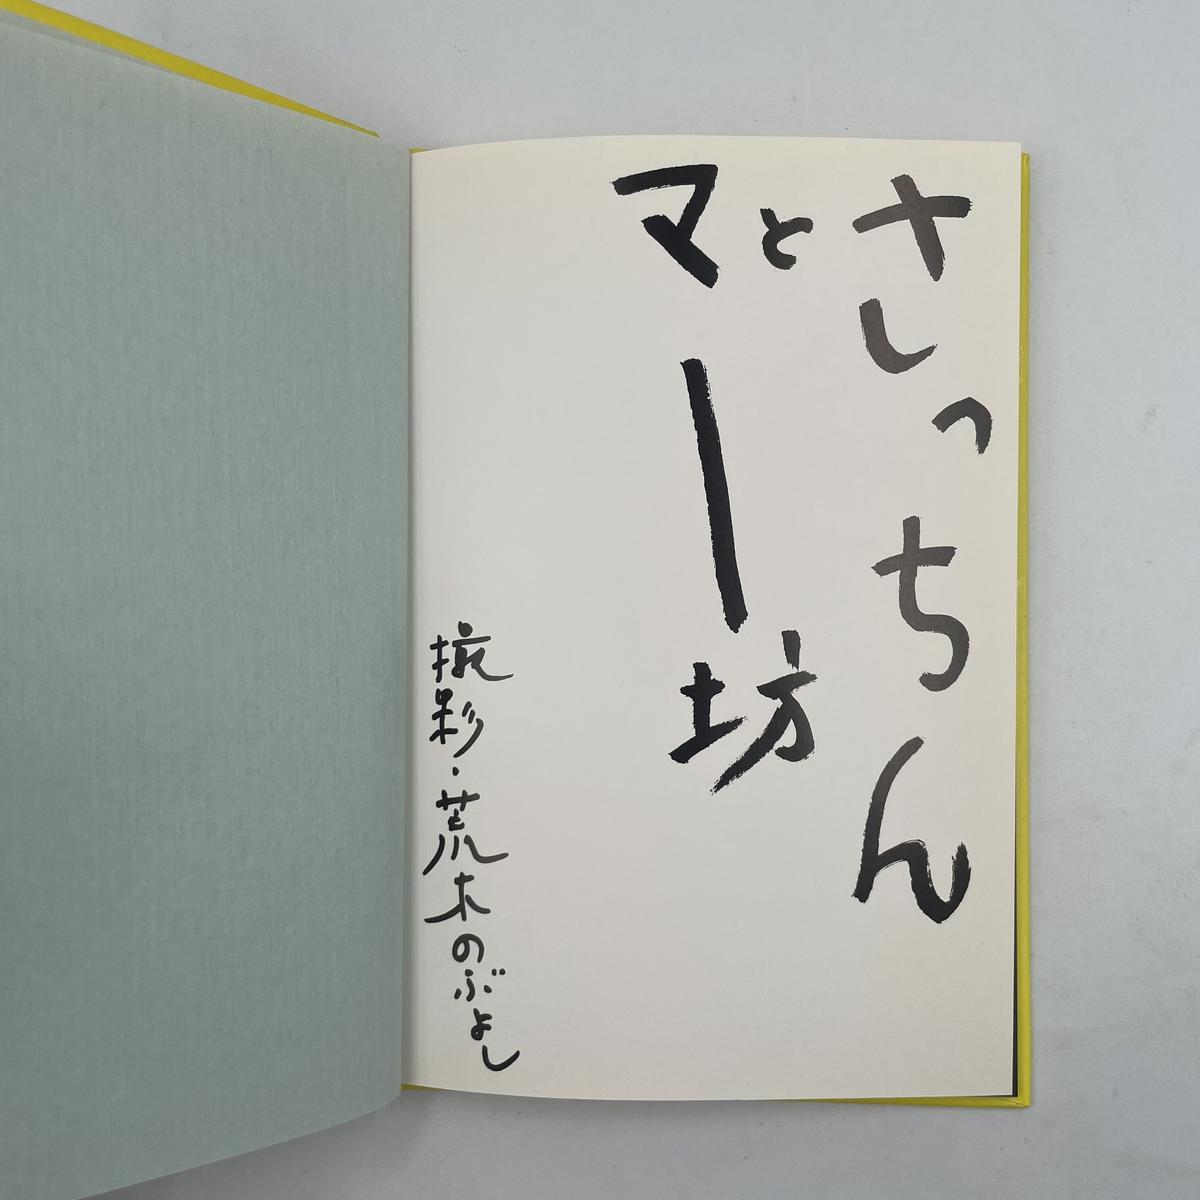 さっちん
と
マー坊
撮影・荒木のぶよし